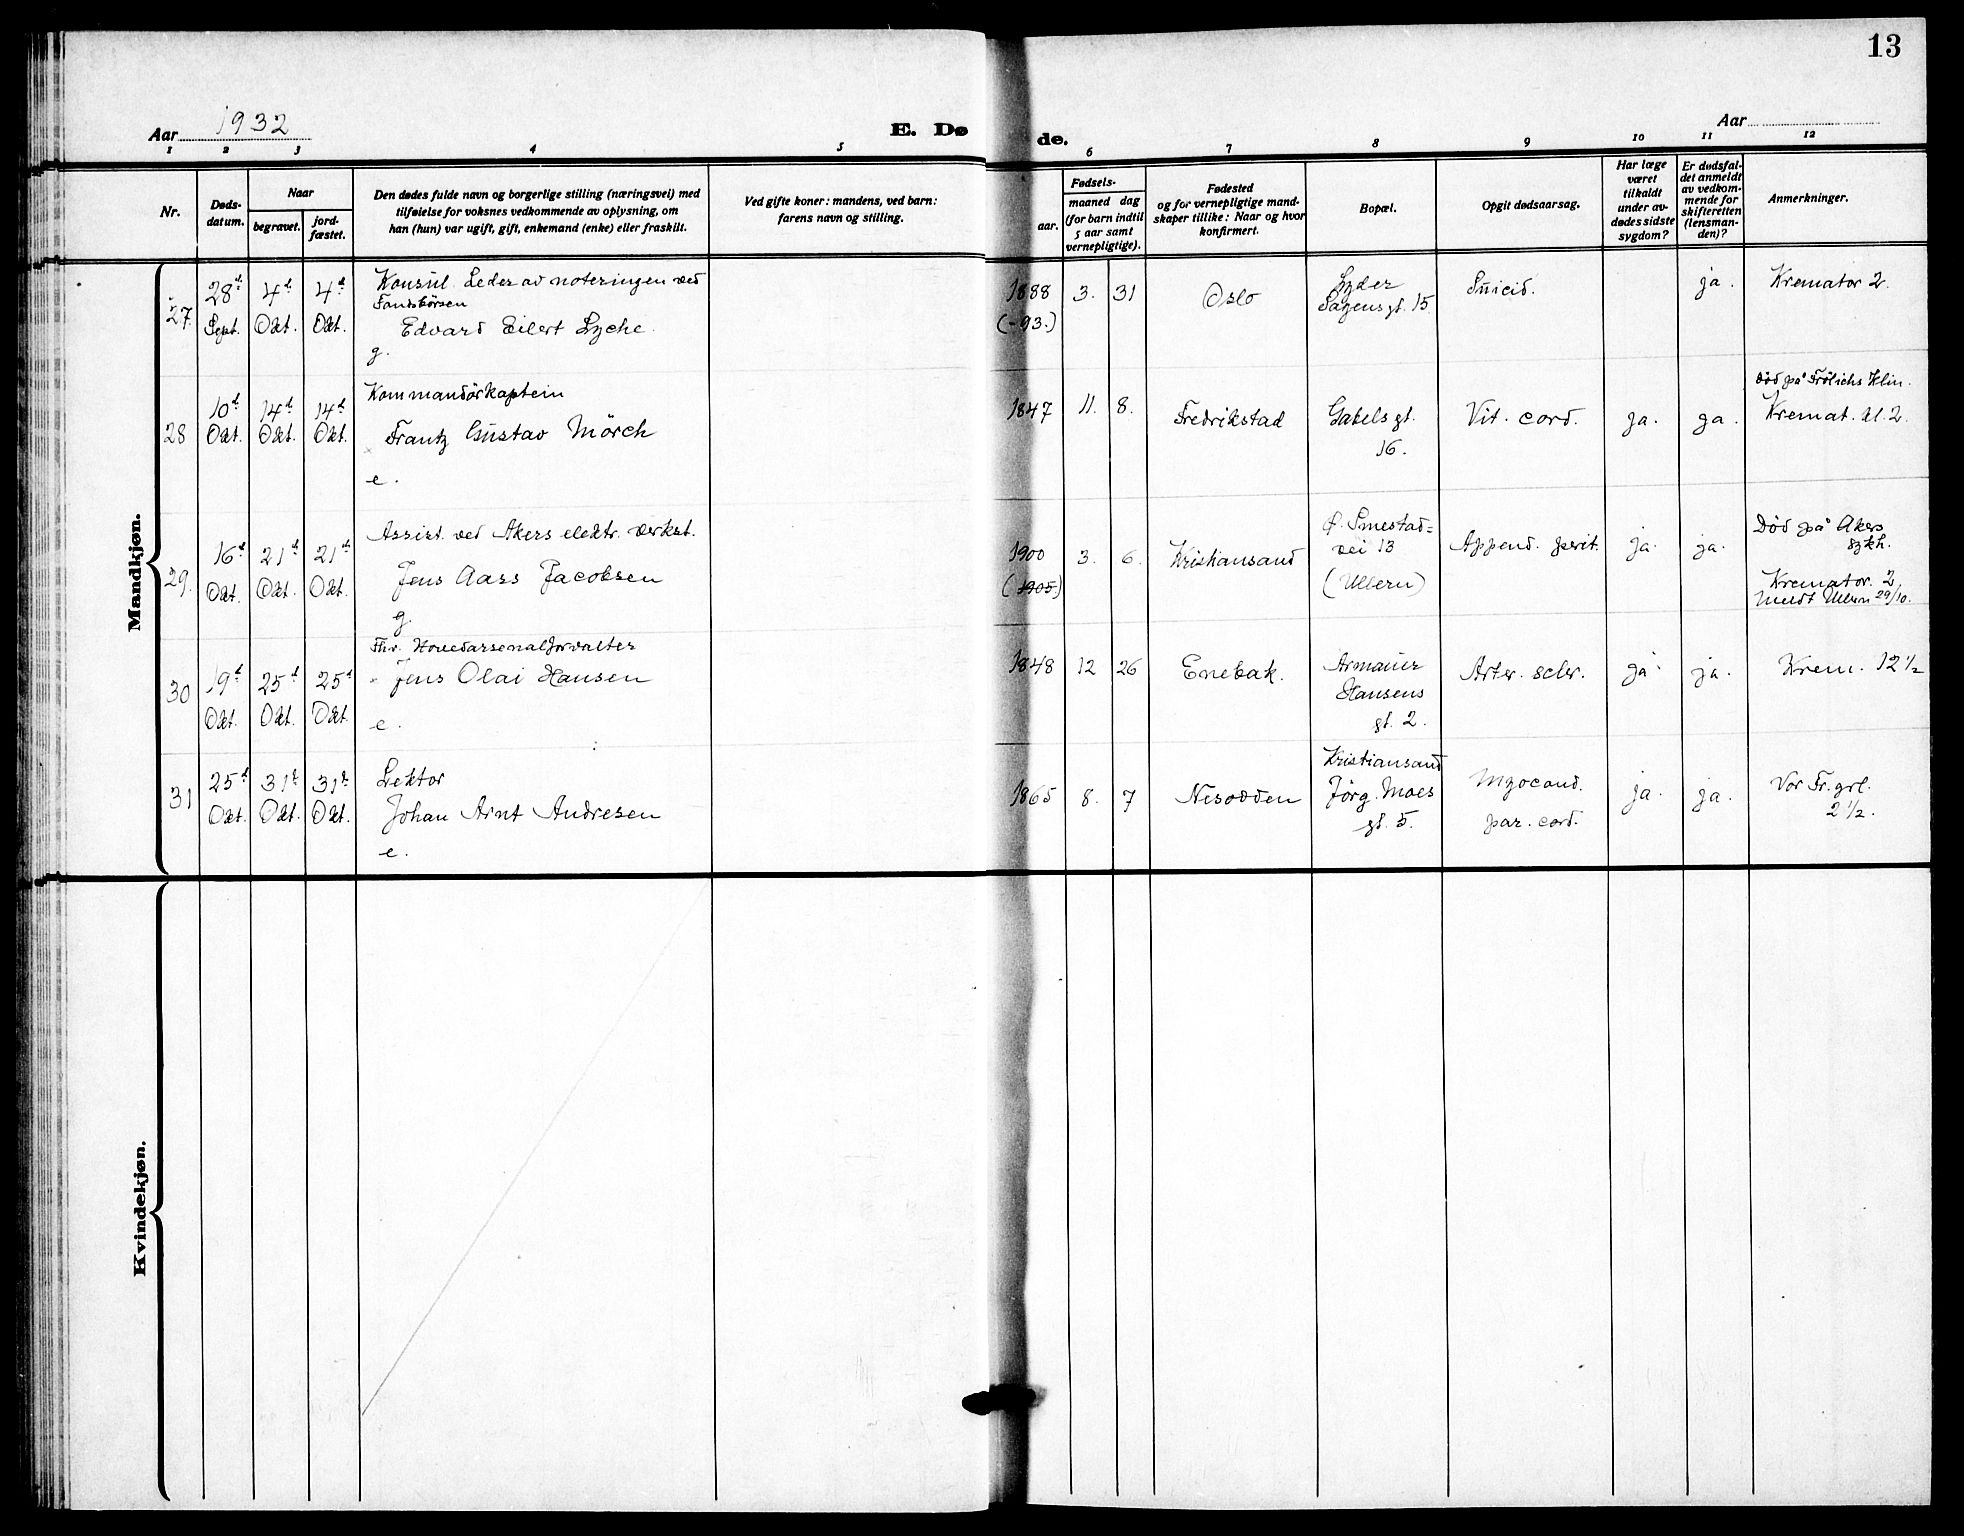 13
Aar 1932
E. Døde.
Aar
1 2 3 4 5 6 7 8 9 10 11 12
Nr.
Døds-
datum.
Naar
begravet.
jord-
fæstet.
Den dødes fulde navn og borgerlige stilling (næringsvei) med
tilføielse for voksnes vedkommende av oplysning, om
han (hun) var ugift, gift, enkemand (enke) eller fraskilt.
Ved gifte koner: mandens, ved barn:
farens navn og stilling.
Fødsels-
aar.
maaned dag
(for barn indtil
5 aar samt
vernepligtige).
Fødested
og for vernepligtige mand-
skaper tillike: Naar og hvor
konfirmert.
Bopæl.
Opgit dødsaarsag.
Har læge
været
tilkaldt
under av-
dødes sidste
sygdom?
Er dødsfal-
det anmeldt
av vedkom-
mende for
skifteretten
(lensman-
den)?
Anmerkninger.
Mandkjøn.
27.
28d
Sept.
4d
Okt.
4d
Okt.
Konsul. Leder av noteringen ved
Fondsbörsen
Edvard Eilert Lyche.
g.
1888
(-93.)
3. 31
Oslo
Lyder
Sagensgt. 15.
Suicid.
ja.
Kremator 2.
28
10d
Okt.
14d
Okt.
14d
Okt.
Kommandörkaptein
Frantz Gustav Mörch
e.
1847
11. 8.
Fredrikstad
Gabelsgt.
16.
Vit. cord.
ja.
ja.
Död på Frölichs Klin.
Kremat. kl. 2.
29.
16d
Okt.
21d
Okt.
21d
Okt.
Assist. ved Akers elektr. verkst.
Jens Aars Jacobsen
g.
1900
(1905)
3. 6.
Kristiansand
Ø. Smestad=
vei 13
(Ullern)
Append. perit.
ja.
ja.
Död på Akers
sykh.
Kremator. 2
Meldt Ullern 29/10.
30
19d
Okt.
25d
Okt.
25d
Okt.
Fhv. Hovedarsenalforvalter
Jens Olai Hansen
e.
1848
12 26
Enebak.
Armauer
Hansens
gt. 2.
Arter. scler.
ja
ja.
Krem. 12 1/2
31
25d
Okt.
31d
Okt.
31d
Okt.
Lektor
Johan Arnt Andresen
e.
1865
8. 7
Nesodden
Kristiansand
Jörg. Moes
gt. 5.
Myocard.
par. cord.
ja.
ja.
Vor Fr. grl.
2 1/2.
Kvindekjøn.